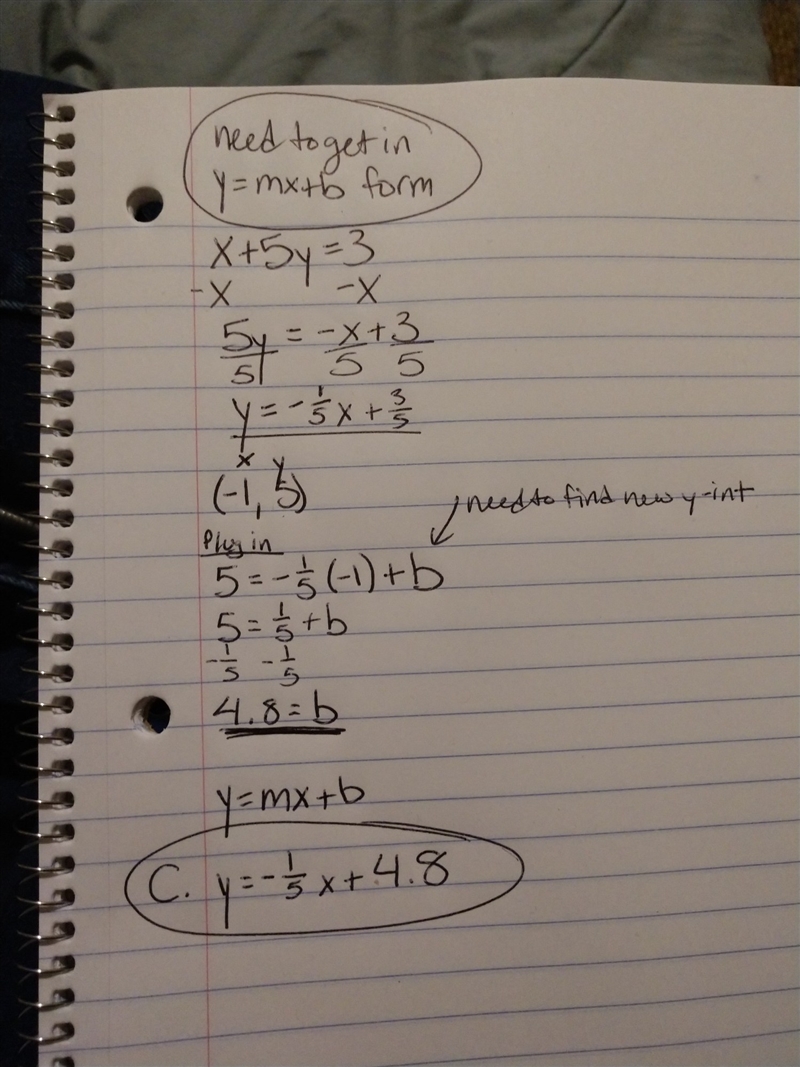 need to get in
y=mx+b form
x+5y=3
-x -x
5y = -x + 3
5 5 5
y = -1/5 x + 3/5
x y
(-1, 5)
need to find new y-int
Plug in
5 = -1/5 (-1) + b
5 = 1/5 + b
-1/5 -1/5
4.8 = b
y=mx+b
C. y = -1/5 x + 4.8